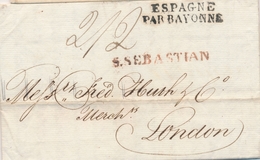 ESPAGNE
PAR BAYONNE
2/2
S. SEBASTIAN
Mess.rs Fred Huth & Co
Merchts
London